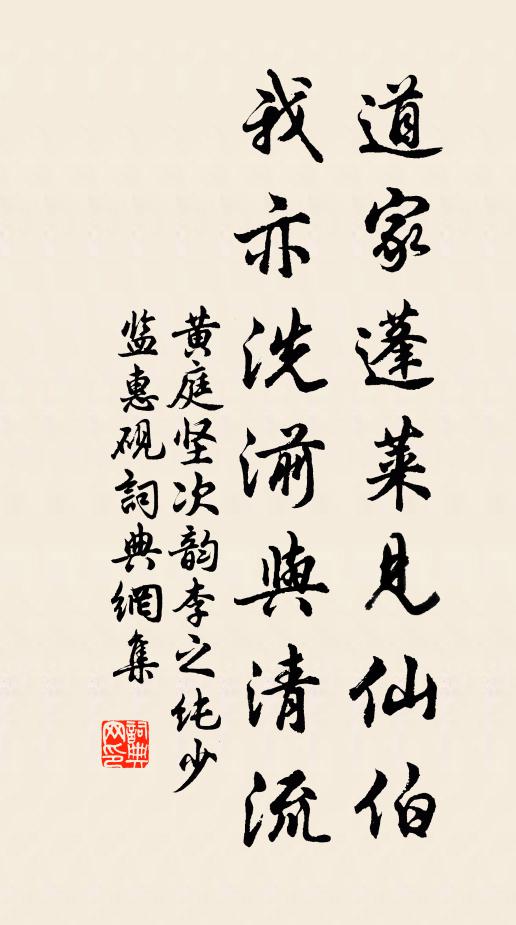 道家蓬莱見仙伯
我亦洗湔與清流
黄庭坚次韵李之纯少
监惠砚詞典網集
詞典
网印